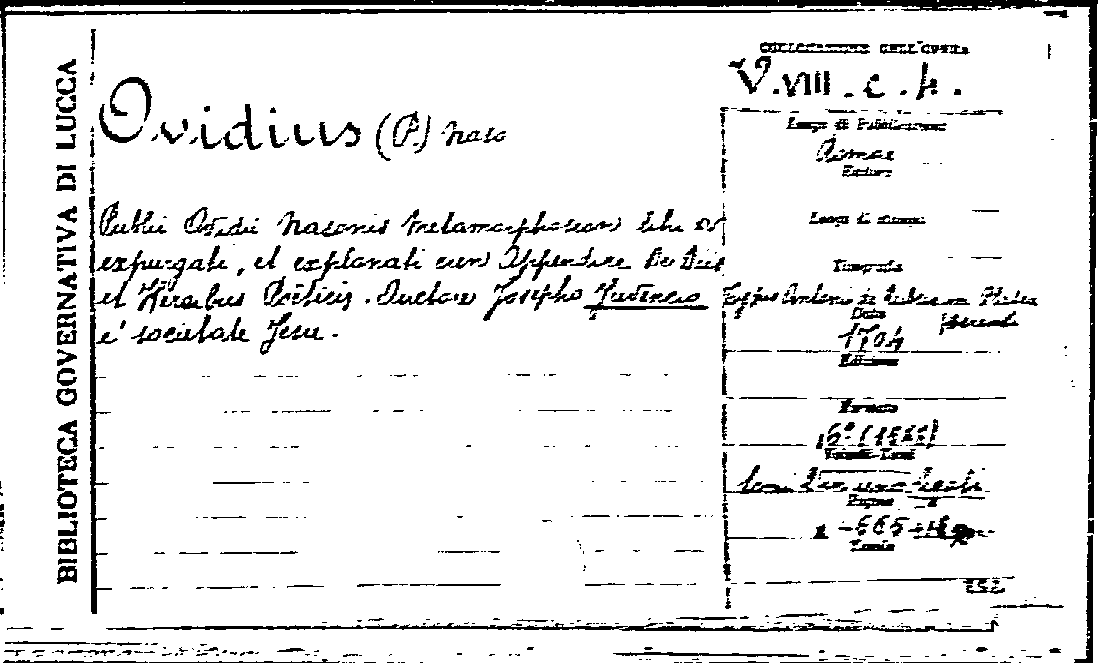 BIBLIOTECA GOVERNATIVA DI LUCCA
COLLOCAZIONE DELL'OPERA
V.VIII.c.4.
Ovidius (P) Naso
Luogo di Pubblicazione
Romae
Editore
Publii Ovidii Nasonis Metamorphoseon libri XV
expurgati, et explanati cum Appendice De Diis
et Heroibus Pöeticis. Auctore Josepho Juvencio
e' societate Jesu.
Luogo di stampa
Tipografia
Typis Antonii de Rubeis in Platea
Data
1704
Edizione
Formato
16°
Volumi-Tomi
Pagine
-565-
Tavole